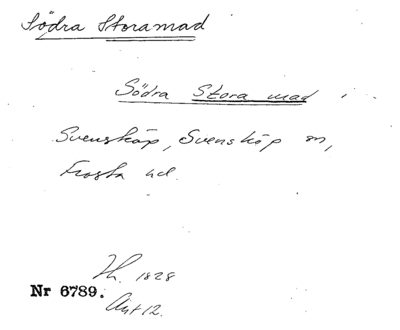 Södra Storamad
Södra Stora mad i
Svensköp, Svensköp sn,
Frosta hd.
Jh. 1828
Nr 6789.
Akt 12.